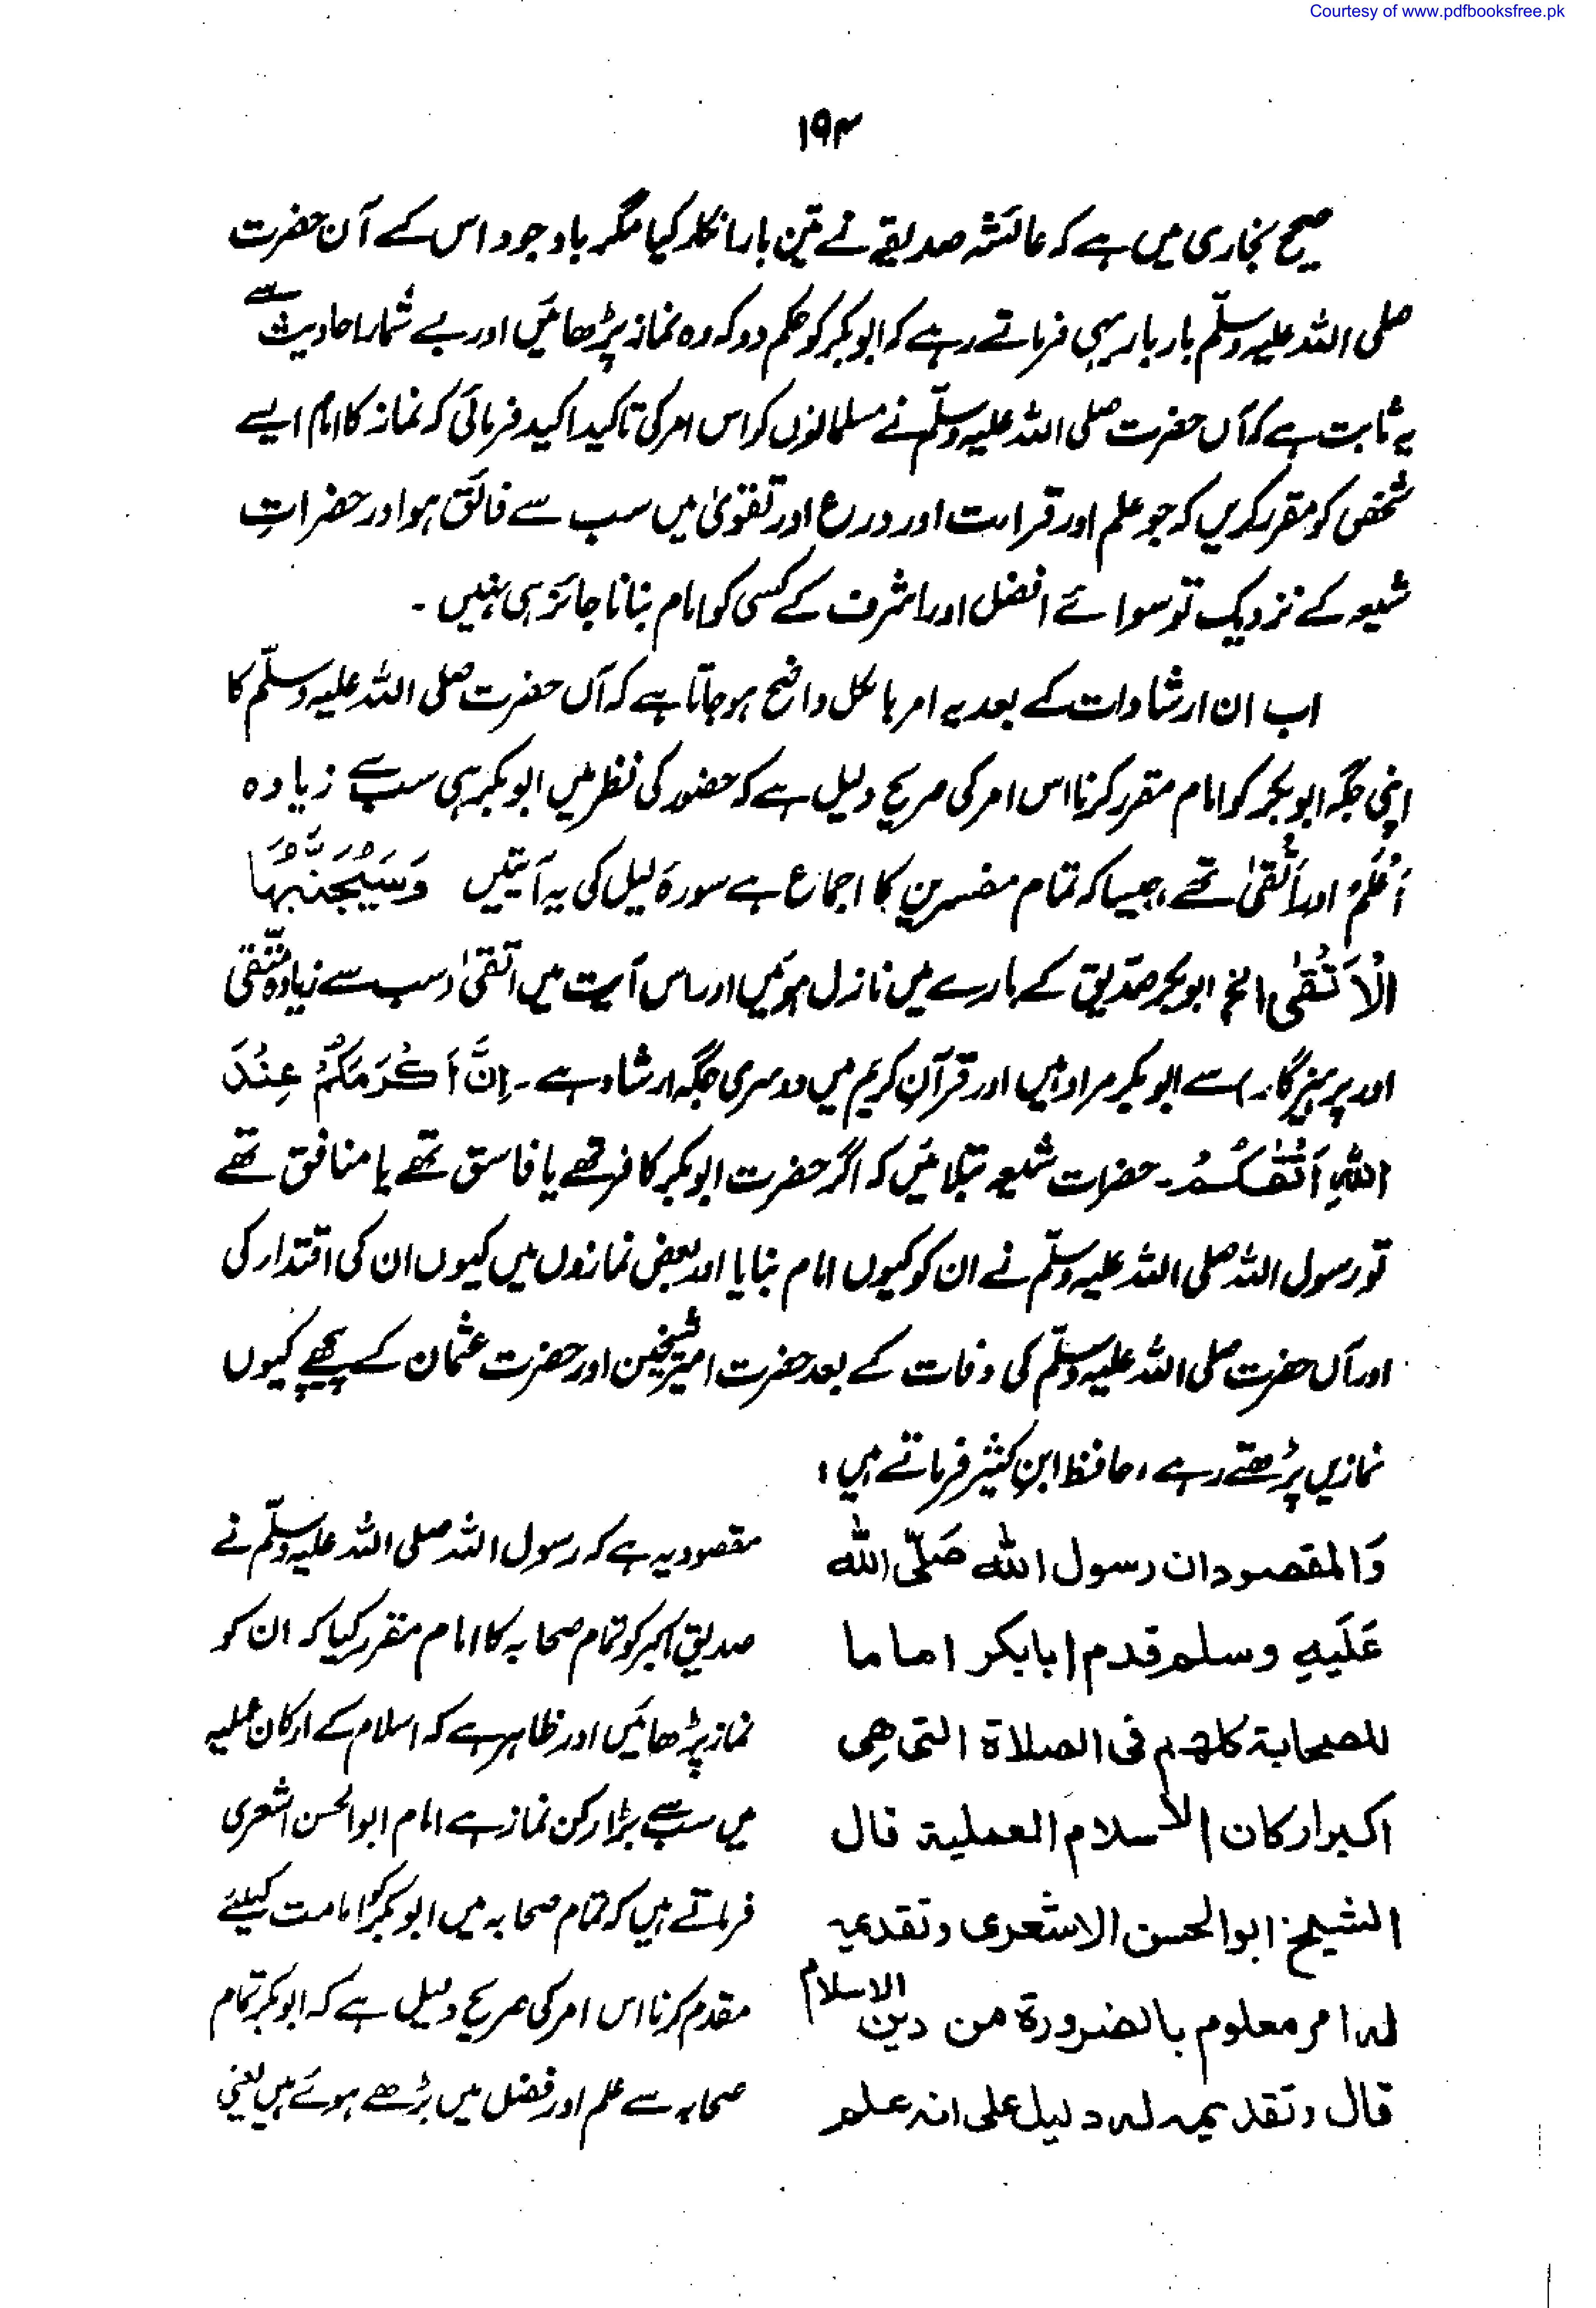 Courtesy of www.pdfbooksfree.pk
۱۹۴
صحیح بخاری میں ہے کہ عائشہ صدیقہ نے تین بار انکار کیا مگر باوجود اس کے آن حضرت
صلی اللہ علیہ وسلّم بار بار یہی فرماتے رہے کہ ابوبکر کو حکم دو کہ وہ نماز پڑھائیں اور بے شمار احادیث سے
یہ ثابت ہے کہ آں حضرت صلی اللہ علیہ وسلّم نے مسلمانوں کو اس امر کی تاکید اکید فرمائی کہ نماز کا امام ایسے
شخص کو مقرر کریں کہ جو علم اور قراءت اور ورع اور تقویٰ میں سب سے فائق ہو اور حضراتِ
شیعہ کے نزدیک تو سوائے افضل اور اشرف کے کسی کو امام بنانا جائز ہی نہیں ۔
اب ان ارشادات کے بعد یہ امر بالکل واضح ہو جاتا ہے کہ آں حضرت صلی اللہ علیہ وسلّم کا
اپنی جگہ ابوبکر کو امام مقرر کرنا اس امر کی صریح دلیل ہے کہ حضور کی نظر میں ابوبکر ہی سب سے زیادہ
اَعْلَمُ اور اَتْقیٰ تھے، جیسا کہ تمام مفسرین کا اجماع ہے سورۂ لیل کی یہ آیتیں وَسَيُجَنَّبُهَا
الْاَتْقَى الخ ابوبکر صدّیق کے بارے میں نازل ہوئیں اور اس آیت میں اتقیٰ (سب سے زیادہ متّقی
اور پرہیزگار) سے ابوبکر مراد ہیں اور قرآنِ کریم میں دوسری جگہ ارشاد ہے ۔ اِنَّ اَكْرَمَكُمْ عِنْدَ
اللّٰهِ اَتْقٰكُمْ ۔ حضرات شیعہ بتلائیں کہ اگر حضرت ابوبکر کافر تھے یا فاسق تھے یا منافق تھے
تو رسول اللہ صلی اللہ علیہ وسلّم نے ان کو کیوں امام بنایا اور بعض نمازوں میں کیوں ان کی اقتدار کی
اور آں حضرت صلی اللہ علیہ وسلّم کی وفات کے بعد حضرت امیر شیخین اور حضرت عثمان کے پیچھے کیوں
نمازیں پڑھتے رہے، حافظ ابن کثیر فرماتے ہیں :
وَالمقصود ان رسول اللّٰه صَلّى اللّٰه
عَلَيهِ وسلم قدم ابابكر اماما
للصحابة كلهم فى الصلاة التى هِى
اكبر اركان الاسلام العملية قال
الشيخ ابوالحسن الاشعرى وتقديمه
له امر معلوم بالضرورة من دين الاسلام
قال وتقديمه له دليل على انه علم
مقصود یہ ہے کہ رسول اللہ صلی اللہ علیہ وسلّم نے
صدیق اکبر کو تمام صحابہ کا امام مقرر کیا کہ ان کو
نماز پڑھائیں اور ظاہر ہے کہ اسلام کے ارکان عملیہ
میں سب سے بڑا رکن نماز ہے امام ابوالحسن اشعری
فرماتے ہیں کہ تمام صحابہ میں ابوبکر کو امامت کیلئے
مقدم کرنا اس امر کی صریح دلیل ہے کہ ابوبکر تمام
صحابہ سے علم اور فضل میں بڑھے ہوئے ہیں یعنی